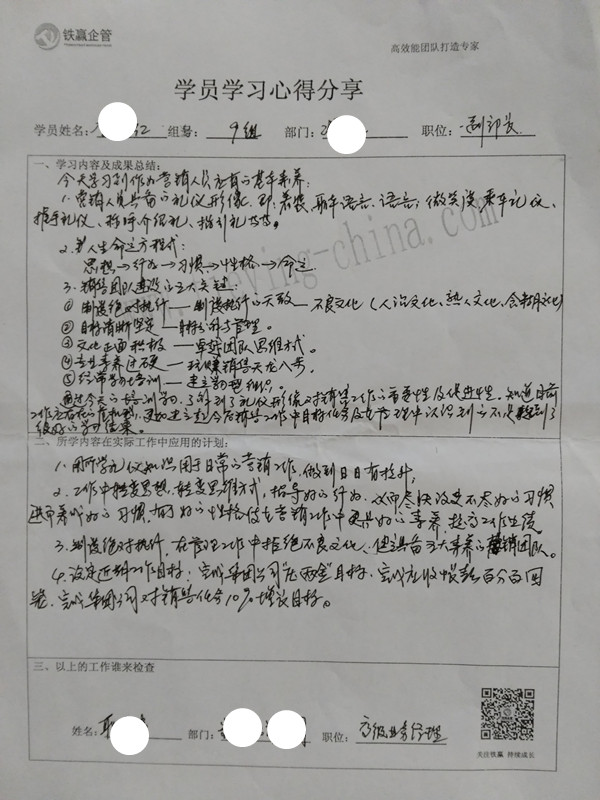 铁赢企管
高效能团队打造专家
学员学习心得分享
学员姓名: 红 组别: 9组 部门: 职位: 副部长
一、学习内容及成果总结:
今天学习到作为营销人员应有的基本素养:
1、营销人员具备的礼仪形像, 即: 着装, 肢体语言, 语言; 微笑谈, 乘车礼仪,
握手礼仪、称呼介绍礼、指引礼等等。
2、成人生命运方程式:
思想→行为→习惯→性格→命运
3、销售团队建设的五大关键:
① 制度绝对执行——制度执行的天敌——不良文化(人治文化、熟人文化、含糊文化)
② 目标清晰坚定——目标的科学管理。
③ 文化正面积极——卓越团队思维方式。
④ 专业素养过硬——玩赚销售天龙八步。
⑤ 经常学习培训——建立学习型组织。
通过今天的培训学习, 了解到了礼仪形像对销售工作的重要性及促进性。知道目前
工作存在的
二、所学内容在实际工作中应用的计划:
1、用所学礼仪知识用于日常的营销工作, 做到日日有提升;
2、工作中转变思想, 转变思维方式, 指导好的行为, 从而尽快改变不好的习惯
进而养成好的习惯, 用好的性格使在营销工作中更具好的素养, 提高工作业绩
3、制度绝对执行, 在管理工作中拒绝不良文化, 使具备五大素养的营销团队。
4、设定近期工作目标: 完成集团公司"压两金"目标, 完成应收帐款百分百回
笼, 完成集团公司对销售任务10%增长目标。
三、以上的工作谁来检查
姓名: 部门: 职位: 高级业务经理
关注铁赢 持续成长